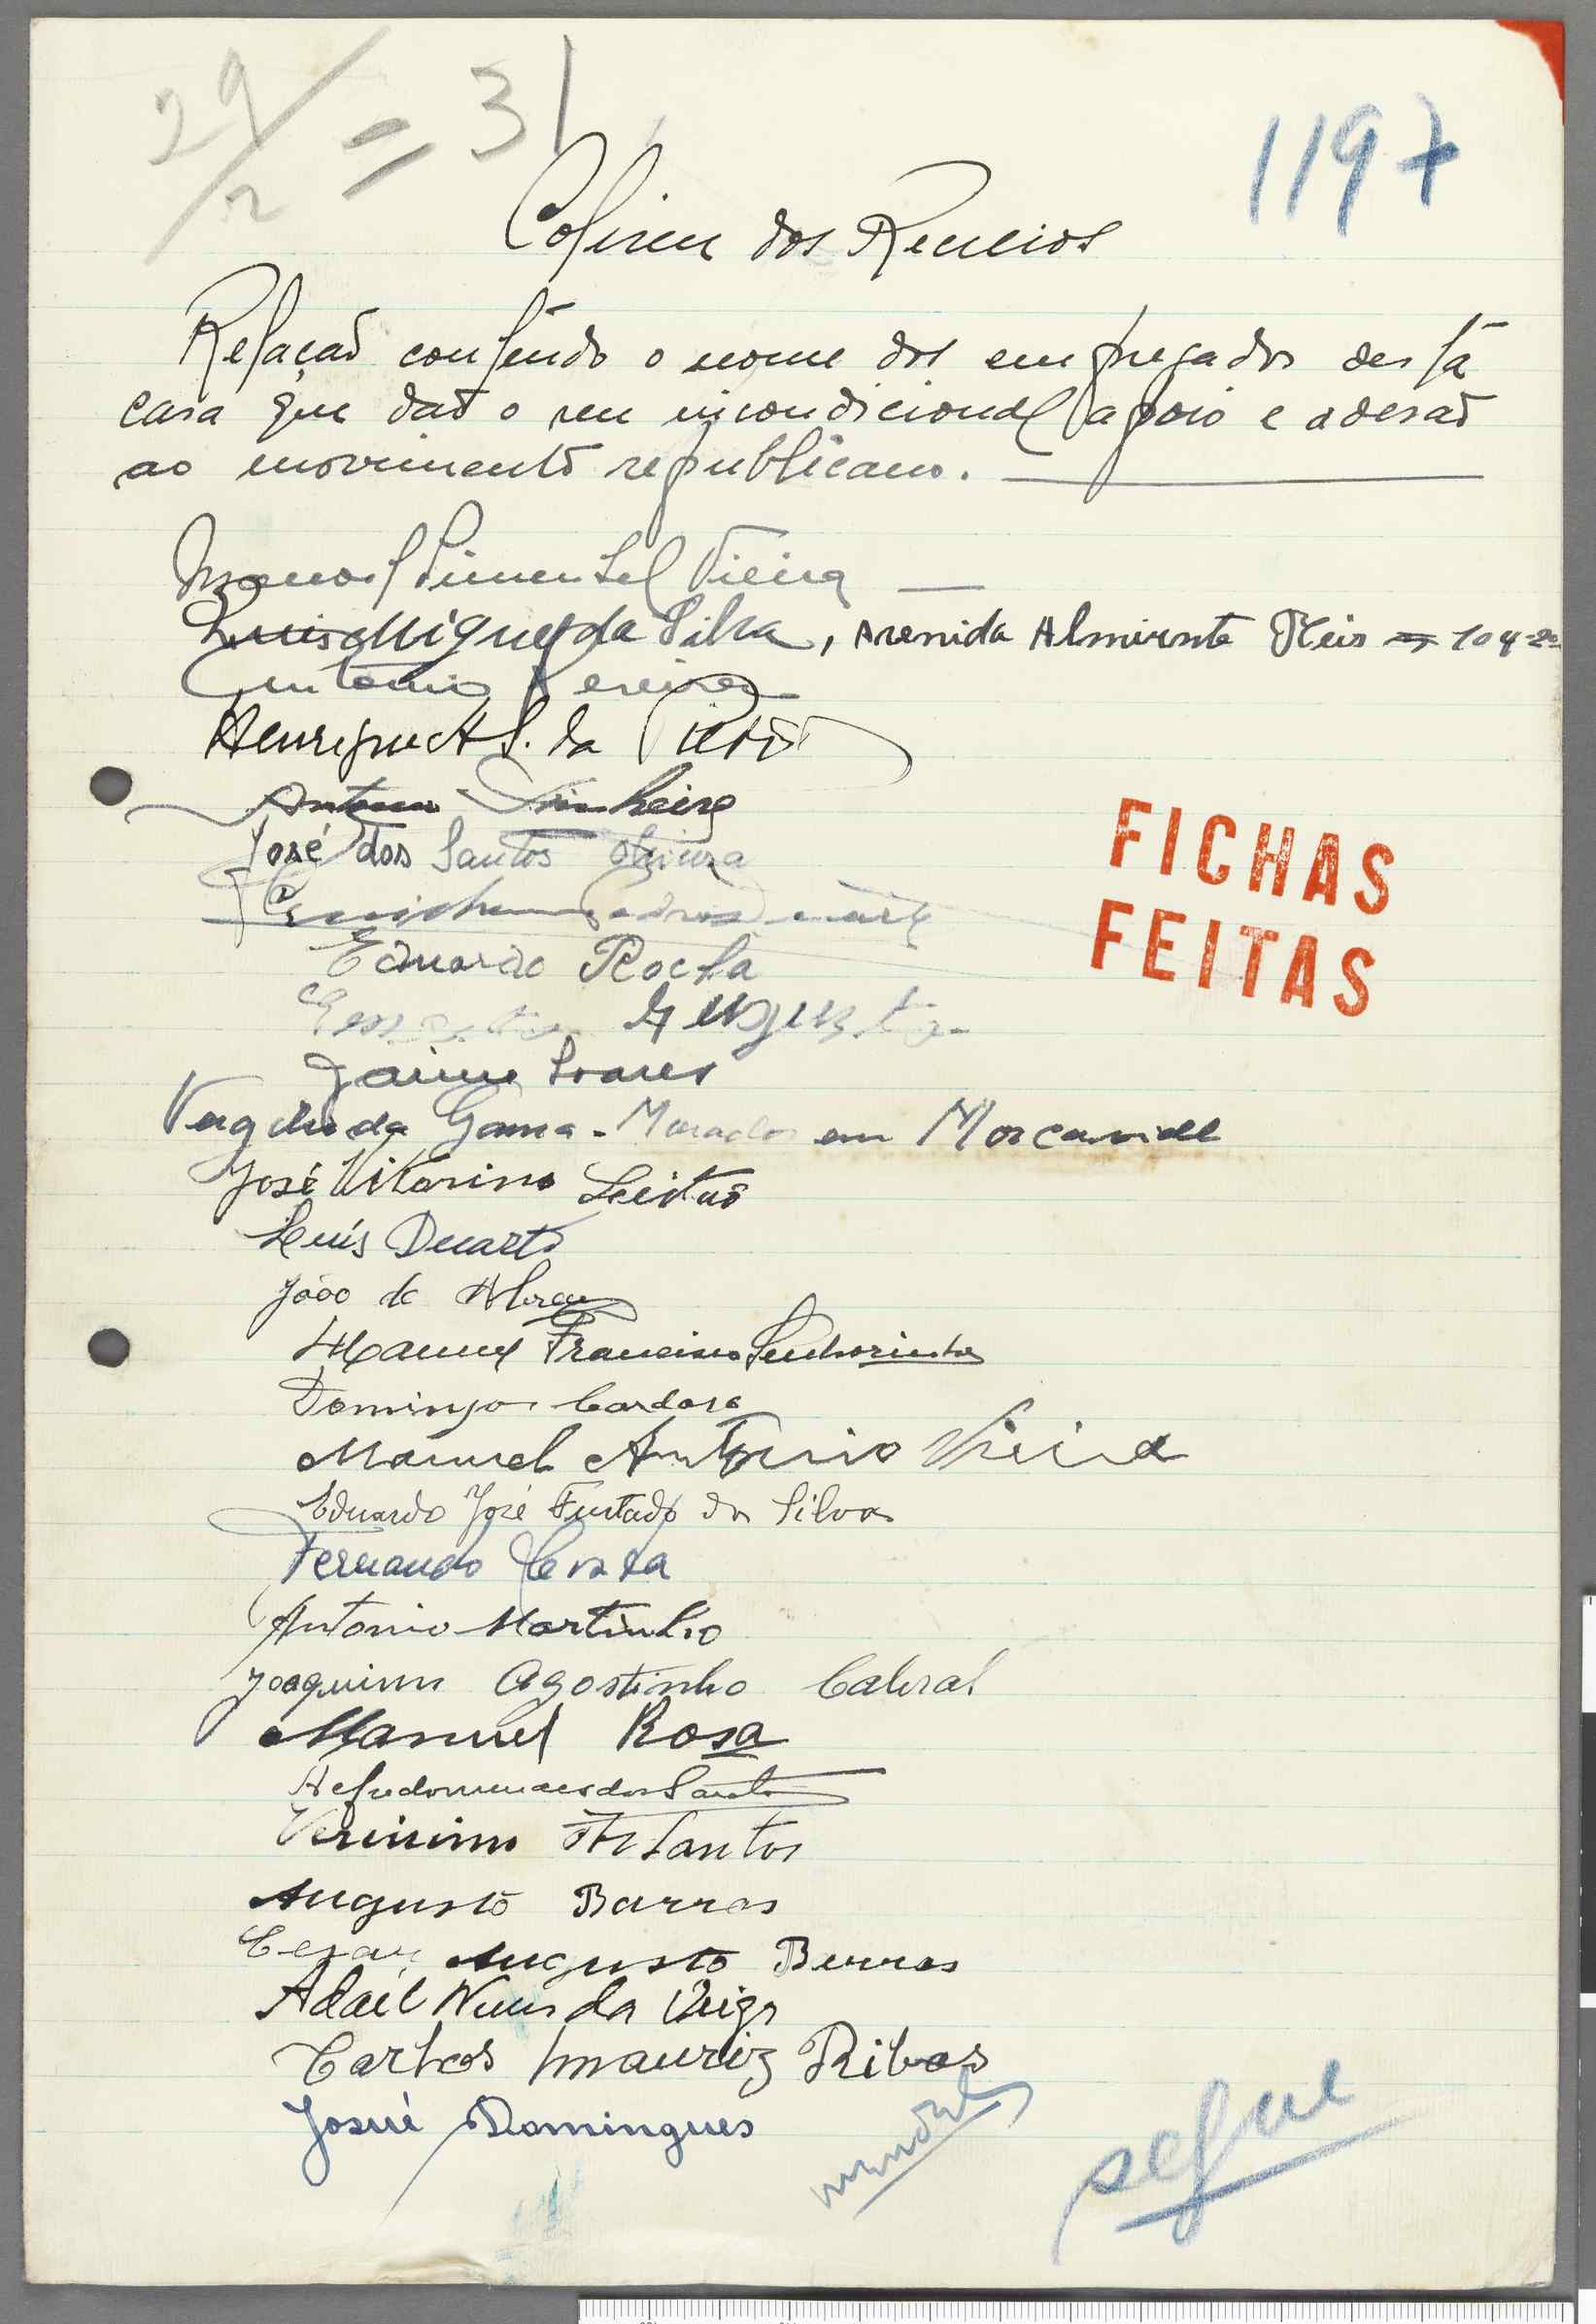 29/2 = 31
1197
Coliseu dos Recreios
Relação contendo o nome dos empregados desta
casa que dão o seu incondicional apoio e adesão
ao movimento republicano.
Manoel Pimentel Vieira
Luis Miguel da Silva, Avenida Almirante Reis 104-2º
Antonio Pereira
Henrique A. S. da
Pinheiro
José dos Santos
FICHAS
FEITAS
Eduardo Rocha
Augusto
Jaime Soares
Vergilio da Gama - Morador em Moscavide
José Vitorino Leitão
Luís Duarte
João de Abreu
Manuel Francisco Senhorinho
Domingos Cardoso
Manuel Antonio Vieira
Eduardo José Furtado da Silva
Fernando Costa
Antonio Martinho
Joaquim Agostinho Cabral
Manuel Rosa
dos Santos
Verissimo Santos
Augusto Barros
Cezar Augusto Barros
Adail Nunes da Veiga
Carlos Mauriz Ribas
Josué Domingues
segue